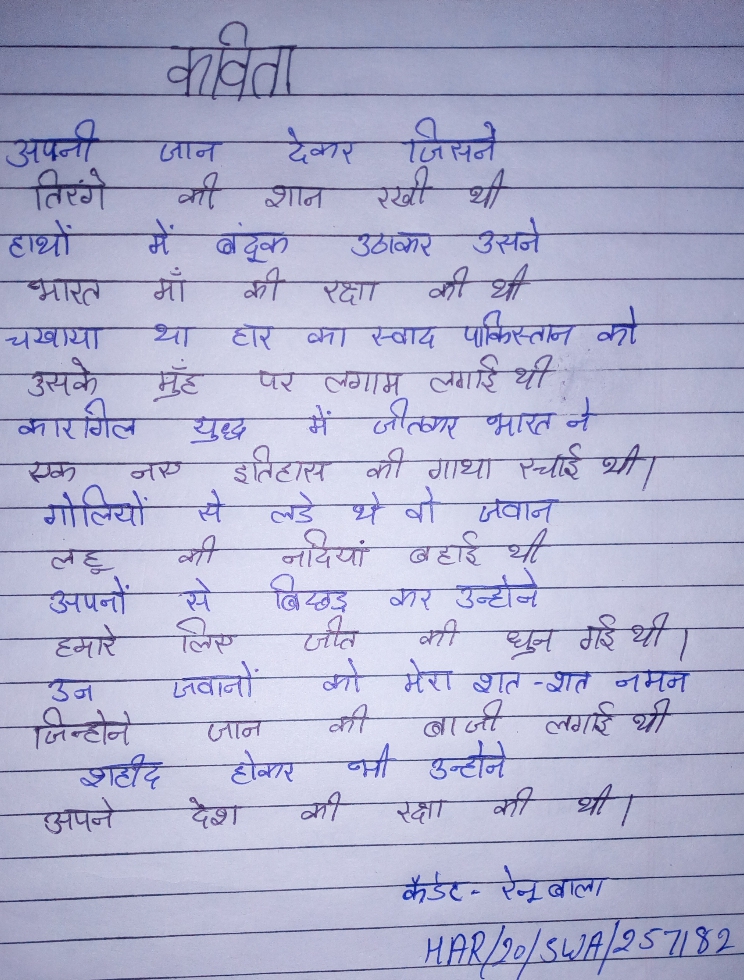 कविता
अपनी जान देकर जिसने
तिरंगे की शान रखी थी
हाथों में बंदूक उठाकर उसने
भारत माँ की रक्षा की थी
चखाया था हार का स्वाद पाकिस्तान को
उसके मुँह पर लगाम लगाई थी
कारगिल युद्ध में जीतकर भारत ने
एक नए इतिहास की गाथा रचाई थी।
गोलियों से लडे थे वो जवान
लहू की नदियां बहाई थी
अपनों से बिछड़ कर उन्होने
हमारे लिए जीत की धुन गाई थी।
उन जवानों को मेरा शत-शत नमन
जिन्होने जान की बाजी लगाई थी
शहीद होकर भी उन्होने
अपने देश की रक्षा की थी।
कैडेट - रेनू बाला
HAR/20/SWA/257182